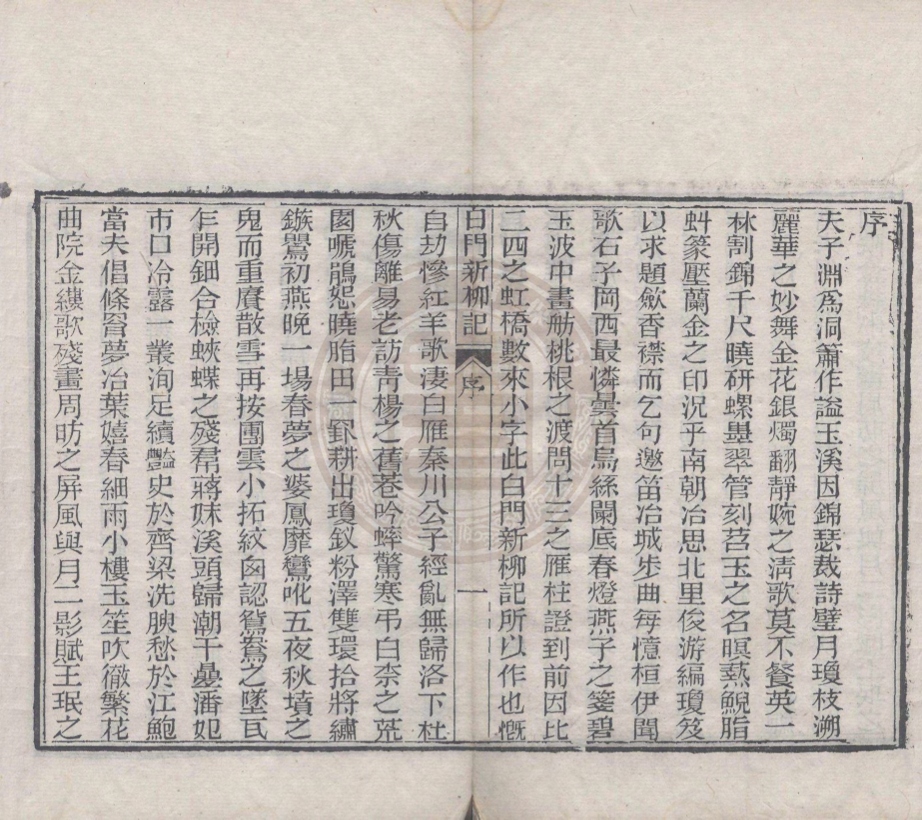 序
夫子淵爲洞簫作謚玉溪因錦瑟裁詩璧月瓊枝溯
麗華之妙舞金花銀燭翻靜婉之淸歌莫不餐英一
林割錦千尺曉研螺墨翠管刻苕玉之名暝爇鯢脂
蚪篆壓蘭金之印況乎南朝冶思北里俊游編瓊笈
以求題斂香襟而乞句邀笛冶城步曲每憶桓伊聞
歌石子岡西最憐曇首烏絲闌底春燈燕子之箋碧
玉波中畫舫桃根之渡問十三之雁柱證到前因比
二四之虹橋數來小字此白門新柳記所以作也慨
白門新柳記 序 一
自劫慘紅羊歌淒白雁秦川公子經亂無歸洛下杜
秋傷離易老訪青楊之舊巷吟蟀驚寒弔白柰之荒
園嗁鵑怨曉脂田一稜耕出瓊釵粉澤雙環拾將繡
鏃鶯初燕晚一場春夢之婆鳳靡鸞吪五夜秋墳之
鬼而重賡散雪再按團雲小拓紋窗認鴛鴦之墜瓦
乍開鈿合檢蛺蝶之殘帬蔣妹溪頭歸潮千疊潘妃
市口冷露一叢洵足續豔史於齊梁洗腴愁於江鮑
當夫倡條眢夢冶葉嬉春細雨小樓玉笙吹徹繁花
曲院金縷歌殘畫周昉之屏風與月二影賦王珉之